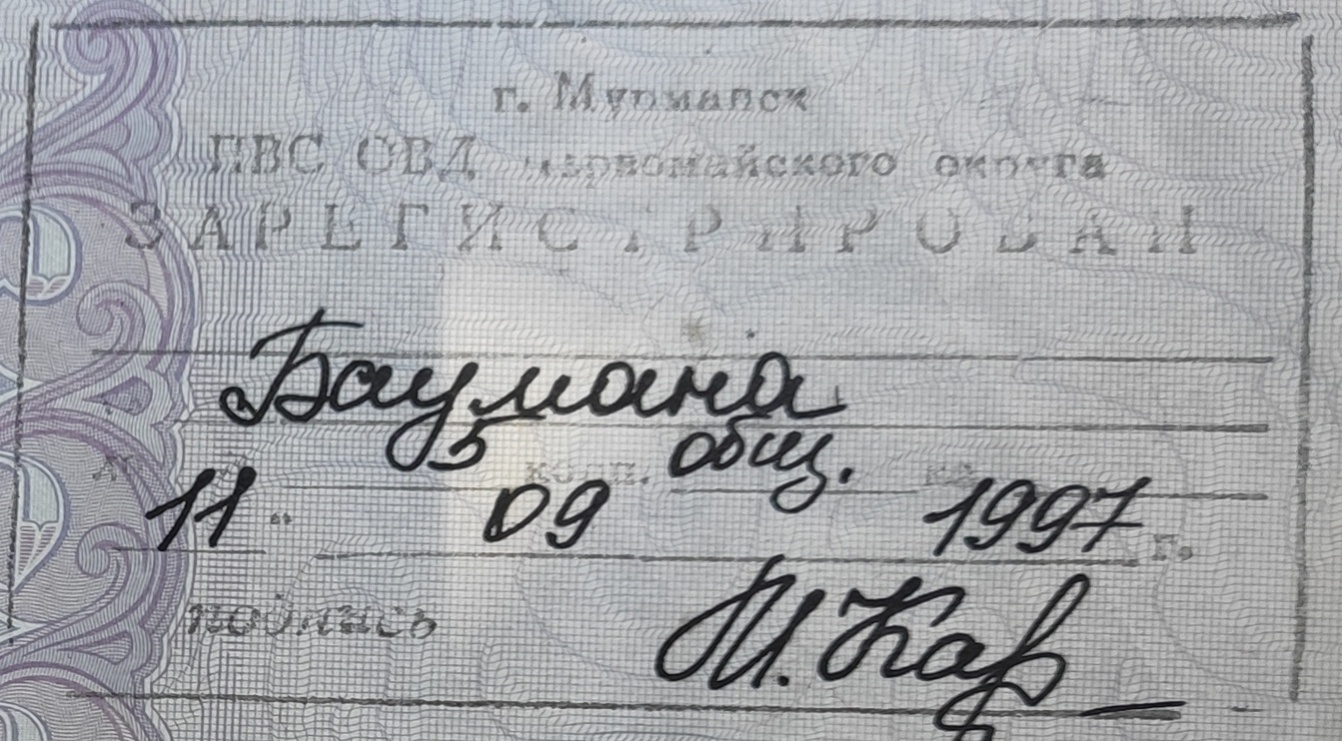 г. Мурманск
ПВС ОВД Первомайского округа
ЗАРЕГИСТРИРОВАН
Баумана
№ 5 корп. общ. кв.
11 " 09 1997 г.
подпись И. Кар